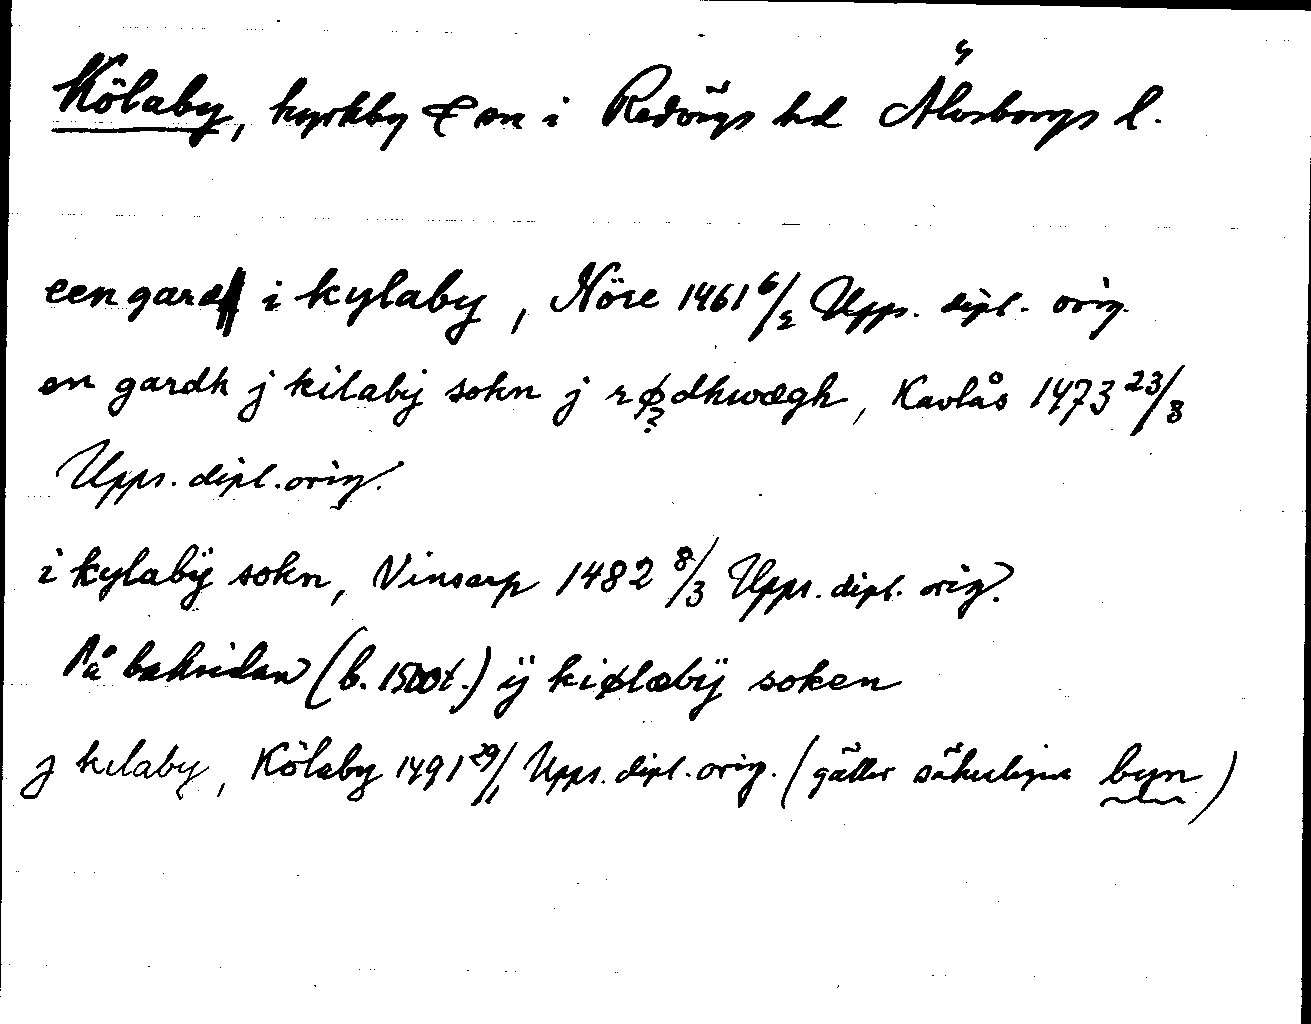 Kölaby, kyrkby & sn i Redvägs hd Älvsborgs l.
een gard i kylaby, Nöre 1461 6/2 Upps. dipl. orig.
en gardh j kilabij sokn j rødhwægh, Kavlås 1473 23/8
?
Upps. dipl. orig.
i kylabÿ sokn, Vinsarp 1482 8/3 Upps. dipl. orig.
På baksidan (b. 1500t.) ÿ kiølæbÿ soken
j kilaby, Kölaby 1491 29/1 Upps. dipl. orig. (gäller säkerligen byn)